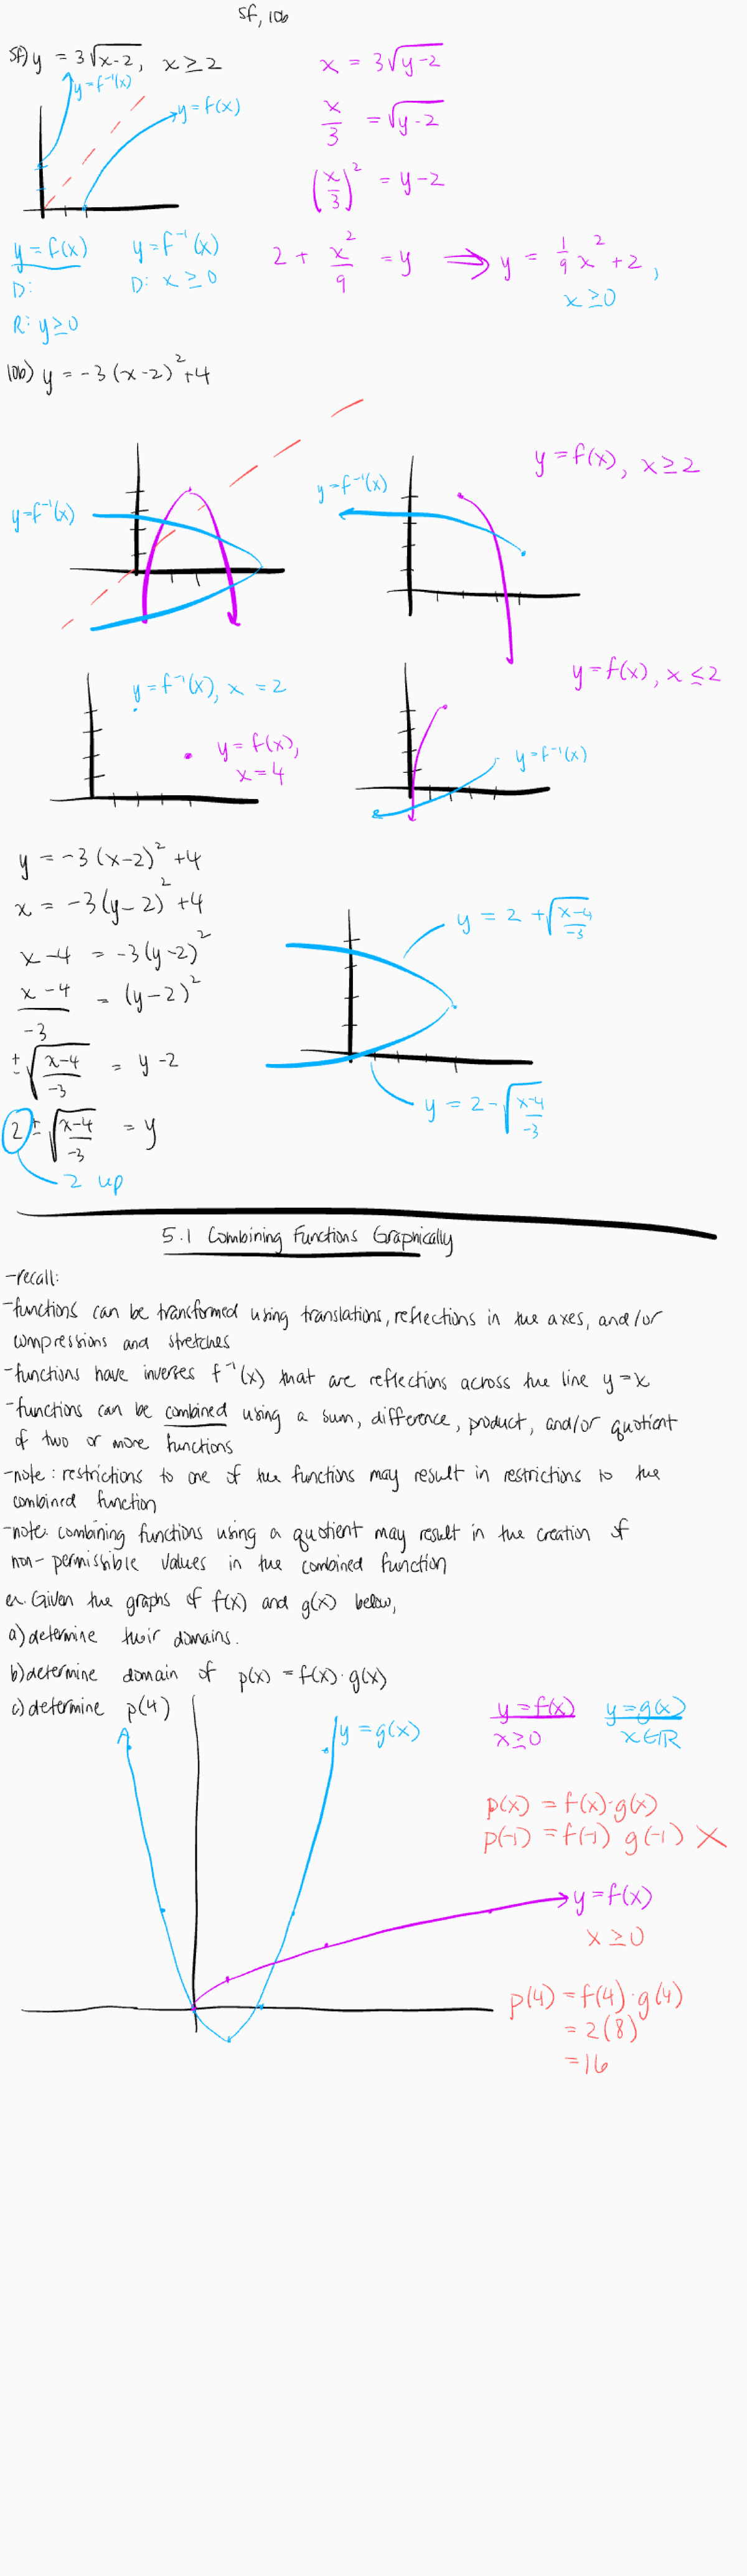 5f, 10b
5f) y = 3√(x-2), x ≥ 2
y = f⁻¹(x)
y = f(x)
x = 3√(y-2)
x/3 = √(y-2)
(x/3)² = y-2
2 + x²/9 = y ⇒ y = 1/9 x² + 2,
x ≥ 0
y = f(x) y = f⁻¹(x)
D: D: x ≥ 0
R: y ≥ 0
10b) y = -3(x-2)² + 4
y = f⁻¹(x)
y = f⁻¹(x)
y = f(x), x ≥ 2
y = f⁻¹(x), x = 2
y = f(x),
x = 4
y = f(x), x ≤ 2
y = f⁻¹(x)
y = -3(x-2)² + 4
x = -3(y-2)² + 4
x-4 = -3(y-2)²
(x-4)/-3 = (y-2)²
±√((x-4)/-3) = y-2
2 ± √((x-4)/-3) = y
2 up
y = 2 + √((x-4)/-3)
y = 2 - √((x-4)/-3)
5.1 Combining Functions Graphically
-recall:
-functions can be transformed using translations, reflections in the axes, and/or
compressions and stretches
-functions have inverses f⁻¹(x) that are reflections across the line y=x
-functions can be combined using a sum, difference, product, and/or quotient
of two or more functions
-note: restrictions to one of the functions may result in restrictions to the
combined function
-note: combining functions using a quotient may result in the creation of
non-permissible values in the combined function
ex. Given the graphs of f(x) and g(x) below,
a) determine their domains.
b) determine domain of p(x) = f(x)·g(x)
c) determine p(4)
y = g(x)
y = f(x) y = g(x)
x ≥ 0 x ∈ ℝ
p(x) = f(x)·g(x)
p(-1) = f(-1) g(-1) X
y = f(x)
x ≥ 0
p(4) = f(4)·g(4)
= 2(8)
= 16